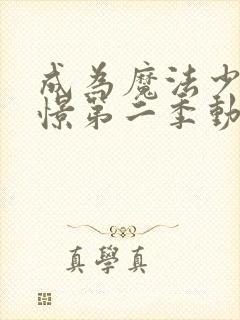 成為魔法少
憬第二季動
真學真